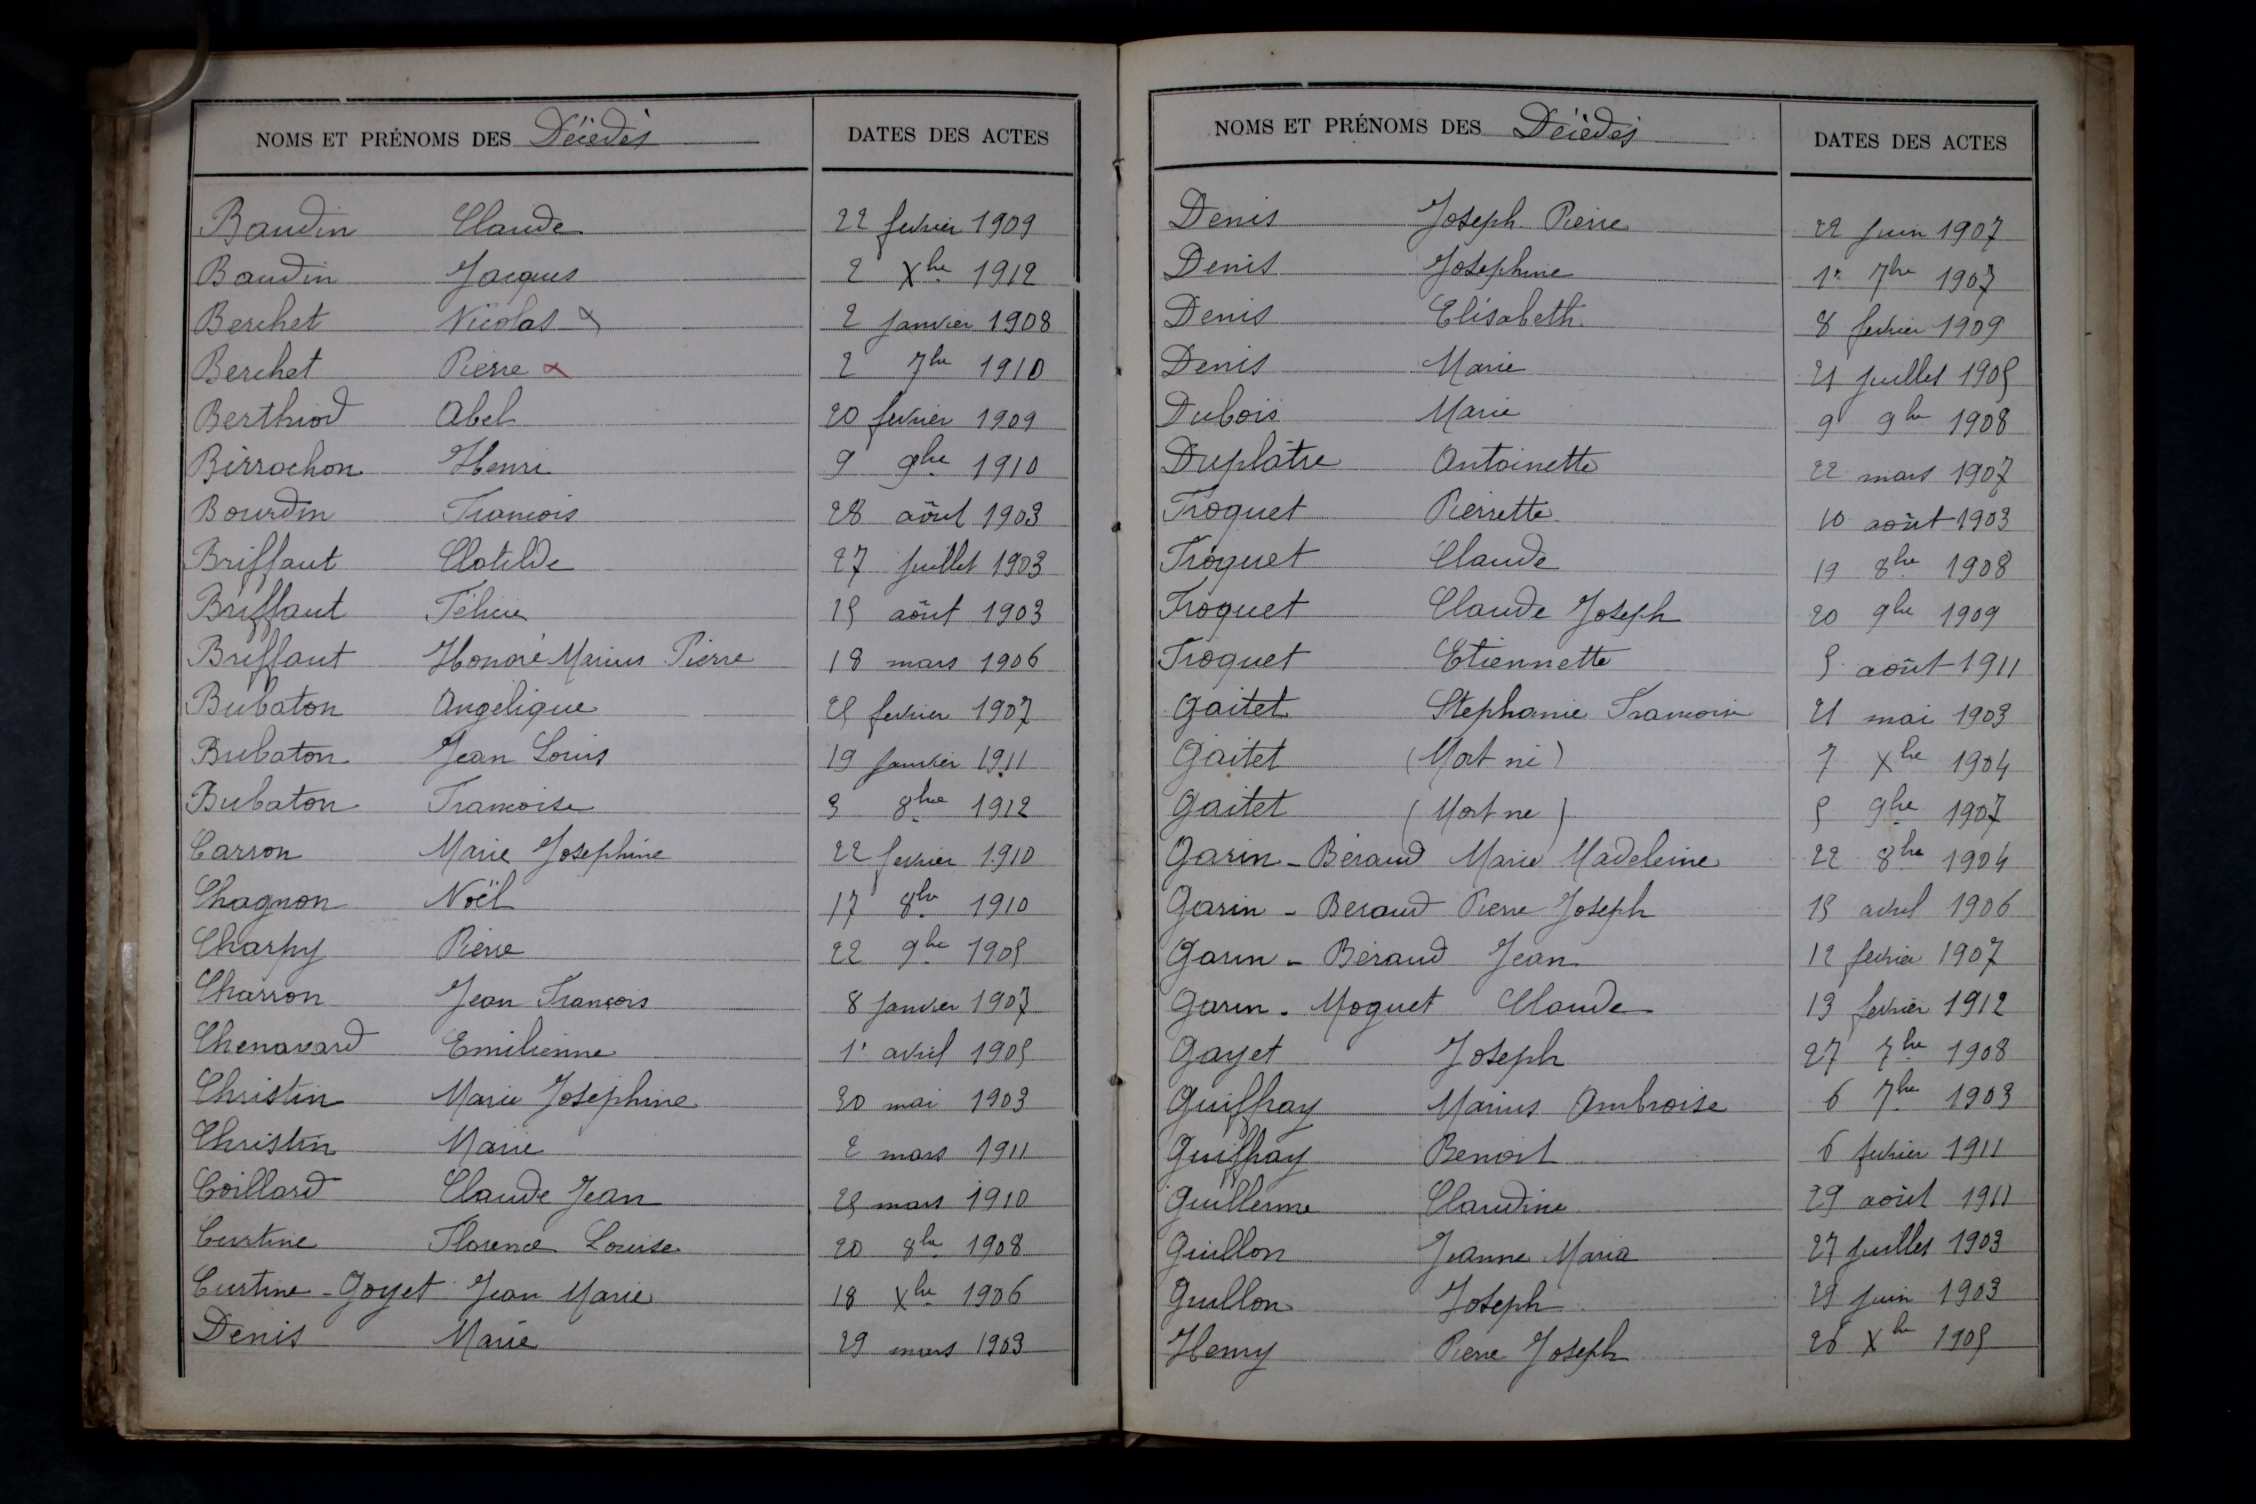 NOMS ET PRÉNOMS DES Décédés DATES DES ACTES
Baudin Claude 22 fevrier 1909
Baudin Jacques 2 Xbre 1912
Berchet Nicolas x 2 janvier 1908
Berchet Pierre x 2 7bre 1910
Berthiod Abel 20 fevrier 1909
Birrochon Henri 9 9bre 1910
Bourdin Francois 28 août 1903
Briffaut Clotilde 27 juillet 1903
Briffaut Félicie 15 août 1903
Briffaut Honoré Marius Pierre 18 mars 1906
Bubaton Angelique 25 fevrier 1907
Bubaton Jean Louis 19 janvier 1911
Bubaton Francoise 3 8bre 1912
Carron Marie Josephine 22 fevrier 1910
Chagnon Noël 17 8bre 1910
Charpy Pierre 22 9bre 1905
Charron Jean François 8 janvier 1907
Chenavard Emilienne 1r avril 1905
Christin Marie Josephine 30 mai 1903
Christin Marie 2 mars 1911
Coillard Claude Jean 25 mars 1910
Curtine Florence Louise 20 8bre 1908
Curtine - Goyet Jean Marie 18 Xbre 1906
Denis Marie 29 mars 1903
NOMS ET PRÉNOMS DES Décédés DATES DES ACTES
Denis Joseph Pierre 22 juin 1907
Denis Josephine 1r 7bre 1907
Denis Elisabeth 8 fevrier 1909
Denis Marie 21 juillet 1905
Dubois Marie 9 9bre 1908
Duplâtre Antoinette 22 mars 1907
Froquet Pierrette 10 août 1903
Froquet Claude 19 8bre 1908
Froquet Claude Joseph 20 9bre 1909
Froquet Etiennette 5 août 1911
Gaitet Stephanie Francoise 21 mai 1903
Gaitet (Mort né) 7 Xbre 1904
Gaitet (Mort ne) 5 9bre 1907
Garin - Béraud Marie Madeleine 22 8bre 1904
Garin - Beraud Pierre Joseph 15 avril 1906
Garin - Béraud Jean 12 fevrier 1907
Garin - Moguet Claude 13 fevrier 1912
Gayet Joseph 27 7bre 1908
Guiffray Marius Ambroise 6 7bre 1903
Guiffray Benoit 6 fevrier 1911
Guillerme Claudine 29 août 1911
Guillon Jeanne Maria 27 juillet 1903
Guillon Joseph 29 juin 1903
Henry Pierre Joseph 26 Xbre 1905